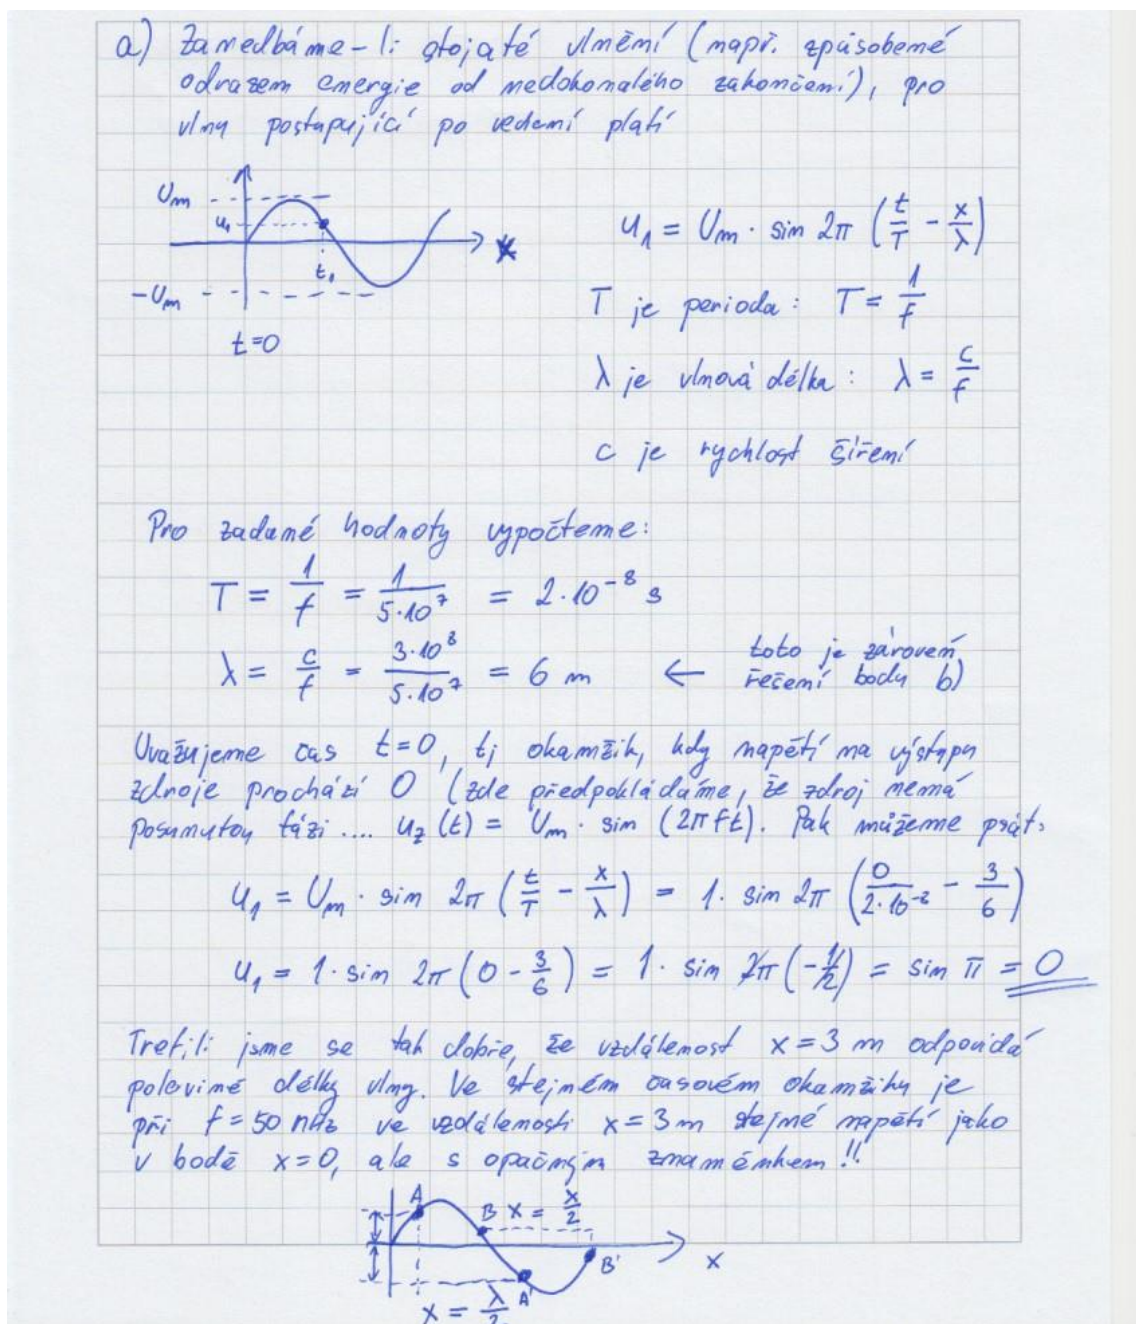 a) Zanedbáme-li stojaté vlnění (např. způsobené
odrazem energie od nedokonalého zakončení), pro
vlny postupující po vedení platí
Um
u1
t1
-Um
t=0
u1 = Um · sin 2π (t/T - x/λ)
T je perioda: T = 1/f
λ je vlnová délka: λ = c/f
c je rychlost šíření
Pro zadané hodnoty vypočteme:
T = 1/f = 1/(5·10^7) = 2·10^-8 s
λ = c/f = 3·10^8/(5·10^7) = 6 m ← toto je zároveň
řešení bodu b)
Uvažujeme čas t=0, tj okamžik, kdy napětí na výstupu
zdroje prochází 0 (zde předpokládáme, že zdroj nemá
posunutou fázi .... uz(t) = Um · sin (2πft). Pak můžeme psát:
u1 = Um · sin 2π (t/T - x/λ) = 1 · sin 2π (0/(2·10^-8) - 3/6)
u1 = 1 · sin 2π (0 - 3/6) = 1 · sin 2π (-1/2) = sin π = 0
Trefili jsme se tak dobře, že vzdálenost x=3 m odpovídá
polovině délky vlny. Ve stejném časovém okamžiku je
při f=50 MHz ve vzdálenosti x=3 m stejné napětí jako
v bodě x=0, ale s opačným znaménkem!!
A B x = x/2
B' x
A'
x = λ/2